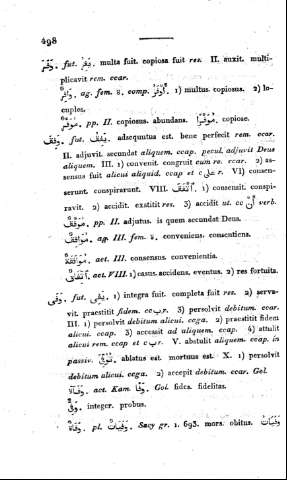 498
وَفَرَ. fut. يَفِرُ. multa fuit. copiosa fuit res. II. auxit. multi-
plicavit rem. ccar.
وَافِرٌ. ag. fem. ة. comp. أَوْفَرُ. 1) multus. copiosus. 2) lo-
cuples.
مُوَفَّرٌ. pp. II. copiosus. abundans. مُوَفَّرًا. copiose.
وَفِقَ. fut. يَفِقُ. adsequutus est. bene perfecit rem. ccar.
II. adjuvit. secundat aliquem. ccap. pecul. adjuvit Deus
aliquem. III. 1) convenit. congruit cum re. ccar. 2) as-
sensus fuit alicui aliquid. ccap et cعلى r. VI) consen-
serunt. conspirarunt. VIII. اِتَّفَقَ. 1) consensit. conspi-
ravit. 2) accidit. exstitit res. 3) accidit ut. cc أن verb.
مُوَفَّقٌ. pp. II. adjutus. is quem secundat Deus.
مُوَافِقٌ. ag. III. fem. ة. conveniens. consentiens.
مُوَافَقَةٌ. act. III. consensus. convenientia.
اِتِّفَاقٌ. act. VIII. 1) casus. accidens. eventus. 2) res fortuita.
وَفَى. fut. يَفِى. 1) integra fuit. completa fuit res. 2) serva-
vit. praestitit fidem. ccبr. 3) persolvit debitum. ccar.
III. 1) persolvit debitum alicui. ccga. 2) praestitit fidem
alicui. ccap. 3) accessit ad aliquem. ccap. 4) attulit
alicui rem. ccap et cبr. V. abstulit aliquem. ccap. in
passiv. تُوُفِّىَ. ablatus est. mortuus est. X. 1) persolvit
debitum alicui. ccga. 2) accepit debitum. ccar. Gol.
وَفَاءٌ. act. Kam. وَفَا. Gol. fides. fidelitas.
وَفِىٌّ. integer. probus.
وَفَاةٌ. pl. وَفَيَاتٌ. Sacy gr. 1. 693. mors. obitus. وَفَيَاتٌ